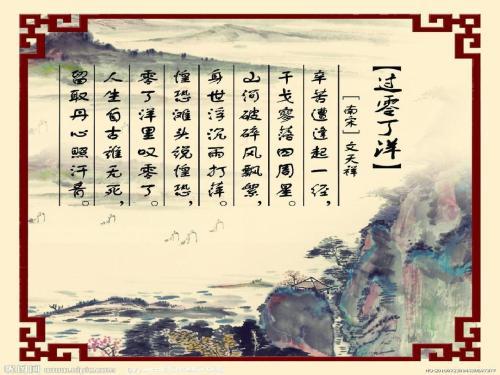 【过零丁洋】
[南宋]文天祥
辛苦遭逢起一经，
干戈寥落四周星。
山河破碎风飘絮，
身世浮沉雨打萍。
惶恐滩头说惶恐，
零丁洋里叹零丁。
人生自古谁无死，
留取丹心照汗青。
昵图网
www.nipic.com